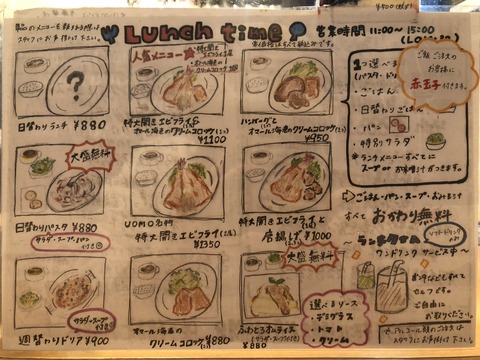 Lunch time
営業時間 11:00～15:00
人気メニュー
日替わりランチ ¥880
特大開きエビフライ&
オマール海老のクリームコロッケ
¥1100
ハンバーグと
オマール海老のクリームコロッケ
¥950
1つ選べる
(パスタ・ドリア
・ごはん
・日替わりごはん
・パン
・特製サラダ
※ランチメニューすべてに
スープ or お味噌汁がつきます。
ご飯ご注文の
お客様に
赤玉子付きます。
大盛無料
日替わりパスタ ¥880
サラダ・スープ・パン
付き
UOMO名物
特大開きエビフライ
¥1350
特大開きエビフライと
唐揚げ ¥1000
⇨ごはん・パン・スープ・おみそ汁
すべて おかわり無料
～ランチタイム
ソフトドリンク
のみ
ワンドリンクサービス中～
お水などもすべて
セルフです。
ご自由に
お取りください。
サラダ・スープ
付き
週替わりドリア ¥900
オマール海老の
クリームコロッケ ¥880
大盛無料
ふわとろオムライス
(サラダ・スープ付き)
¥880
選べるソース
・デミグラス
・トマト
・クリーム
スタッフにお申し付け下さい。